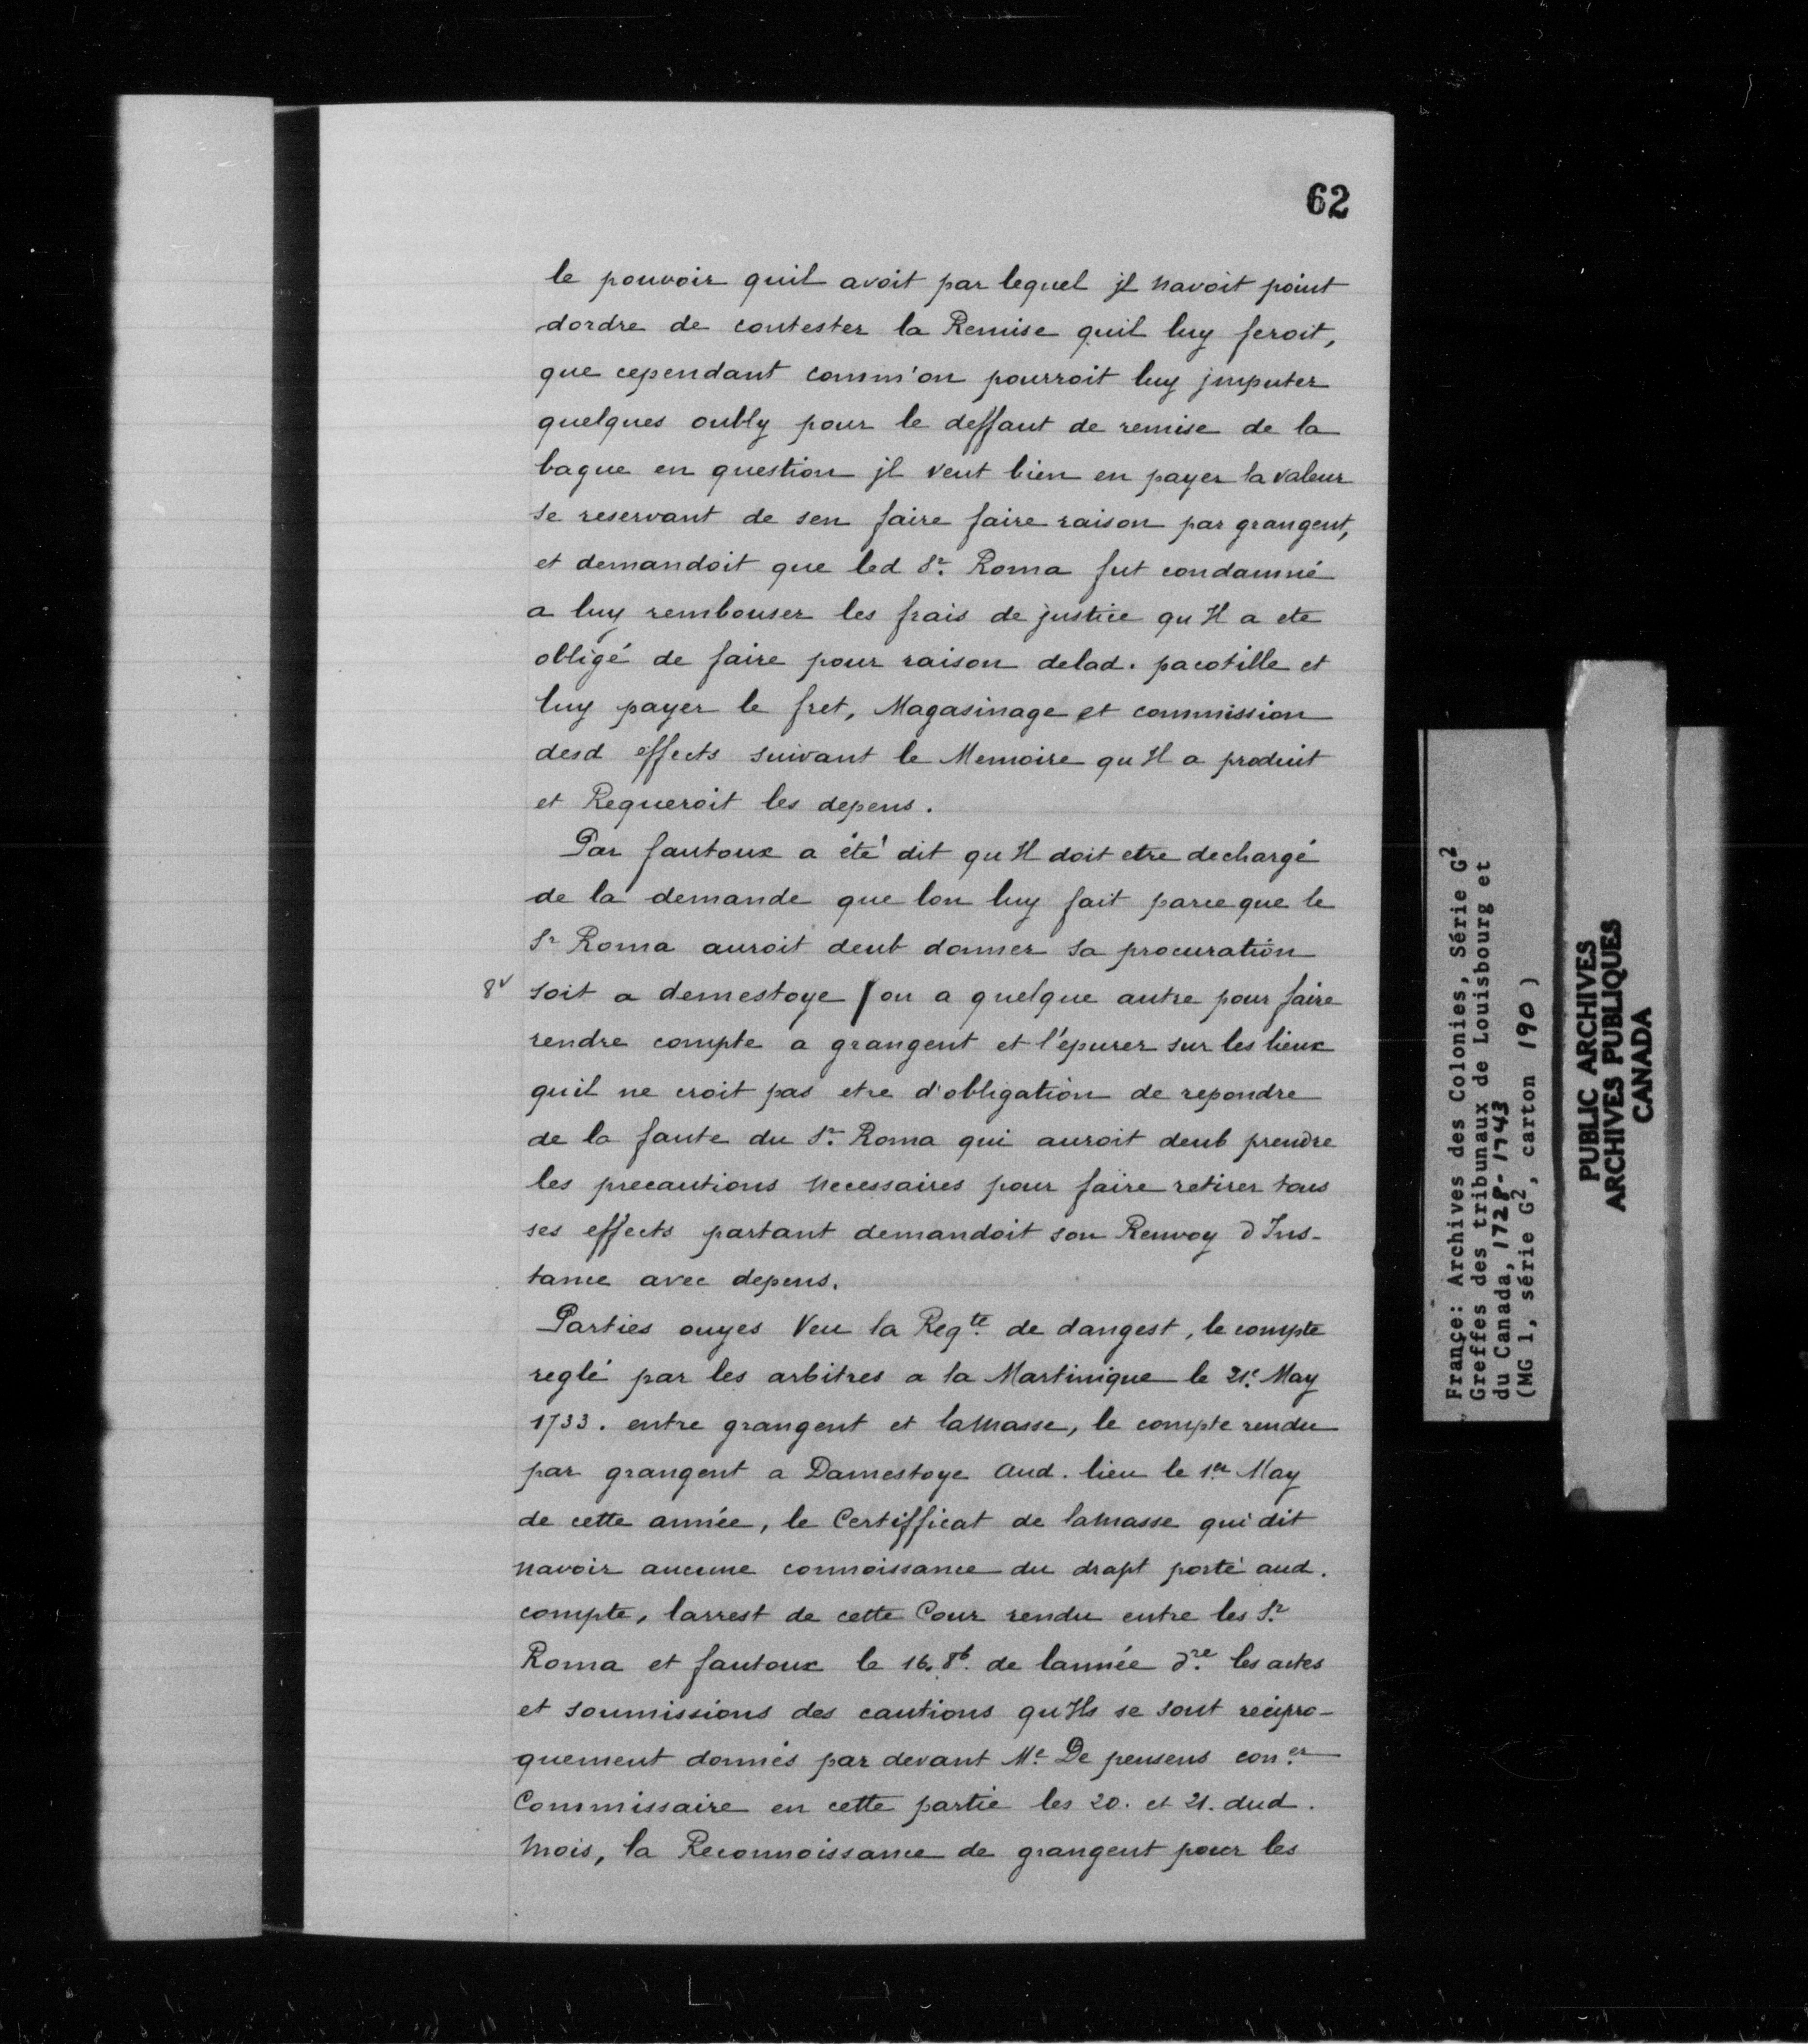 62
le pouvoir quil avoit par lequel jl navoit point
dordre de contester la Remise quil luy feroit,
que cependant comm'on pourroit luy jmputer
quelques oubly pour le deffaut de remise de la
bague en question jl veut bien en payer la valeur
se reservant de sen faire faire raison par grangent,
et demandoit que led Sr. Roma fut condamné
a luy rembouser les frais de justice qu Il a ete
obligé de faire pour raison delad. pacotille et
luy payer le fret, Magasinage et commission
desd effects suivant le Memoire qu Il a produit
et Requeroit les depens.
Par fautoux a été dit qu Il doit etre dechargé
de la demande que lon luy fait parceque le
Sr Roma auroit deub donner sa procuration
8v soit a demestoye / ou a quelque autre pour faire
rendre compte a grangent et l'épurer sur les lieux
quil ne croit pas etre d'obligation de repondre
de la faute du Sr. Roma qui auroit deub prendre
les precautions necessaires pour faire retirer tous
ses effects partant demandoit son Renvoy d Ins-
tance avec depens.
Parties ouyes Veu la Reqte. de dangest, le compte
reglé par les arbitres a la Martinique le 21e. May
1733. entre grangent et lamasse, le compte rendu
par grangent a Damestoye aud. lieu le 1er May
de cette année, le Certifficat de lamasse qui dit
navoir aucune connoissance du drapt porté aud.
compte, larrest de cette Cour rendu entre les Sr.
Roma et fautoux le 16. 8b. de lannée dre. les actes
et soumissions des cautions qu Ils se sont recipro-
quement donnés par devant Me. De pensens coner.
Commissaire en cette partie les 20. et 21. dud.
mois, la Reconnoissance de grangent pour les
France: Archives des Colonies, Série G2
Greffes des tribunaux de Louisbourg et
du Canada, 1728-1743
(MG 1, série G2, carton 190)
PUBLIC ARCHIVES
ARCHIVES PUBLIQUES
CANADA